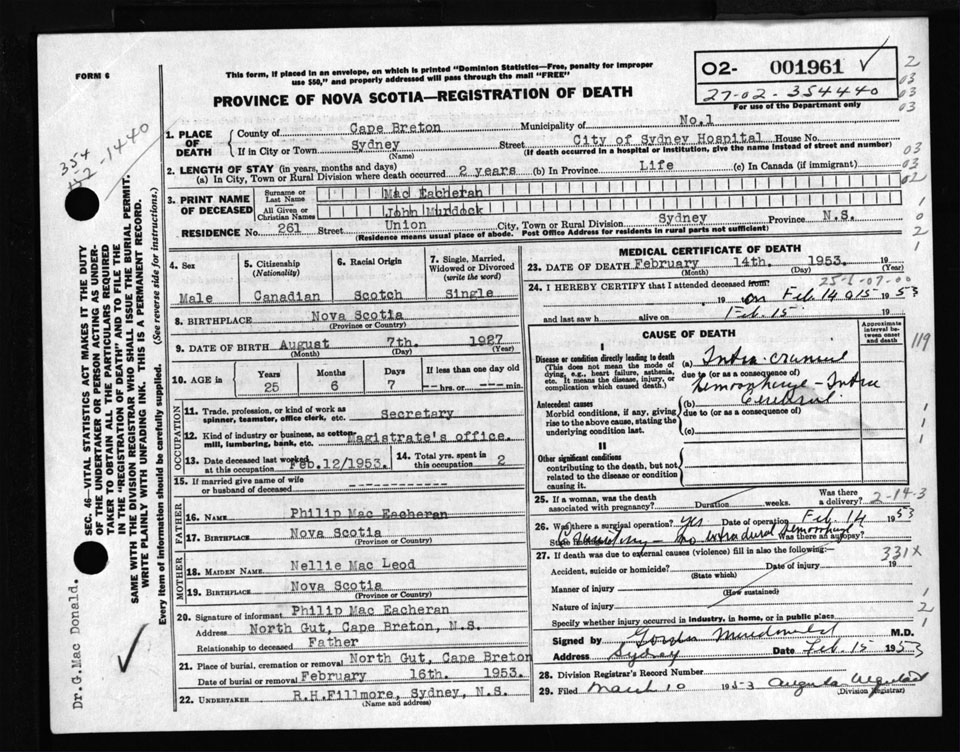 FORM 6
This form, if placed in an envelope, on which is printed "Dominion Statistics—Free, penalty for improper
use $50," and properly addressed will pass through the mail "FREE"
PROVINCE OF NOVA SCOTIA—REGISTRATION OF DEATH
O2- 001961 ✓
27-02-354440
For use of the Department only
1. PLACE OF DEATH
County of Cape Breton Municipality of No.1
If in City or Town Sydney Street City of Sydney Hospital House No.
(Name) (If death occurred in a hospital or institution, give the name instead of street and number)
2. LENGTH OF STAY (in years, months and days)
(a) In City, Town or Rural Division where death occurred 2 years (b) In Province Life (c) In Canada (if immigrant)
3. PRINT NAME OF DECEASED
Surname or Last Name Mac Eacheran
All Given or Christian Names John Murdock
RESIDENCE No. 261 Street Union City, Town or Rural Division Sydney Province N.S.
(Residence means usual place of abode. Post Office Address for residents in rural parts not sufficient)
4. Sex
Male
5. Citizenship
(Nationality)
Canadian
6. Racial Origin
Scotch
7. Single, Married, Widowed or Divorced
(write the word)
Single
8. BIRTHPLACE Nova Scotia
(Province or Country)
9. DATE OF BIRTH August 7th. 1927
(Month) (Day) (Year)
10. AGE in Years Months Days If less than one day old
25 6 7 hrs. or min.
OCCUPATION
11. Trade, profession, or kind of work as
spinner, teamster, office clerk, etc. Secretary
12. Kind of industry or business, as cotton
mill, lumbering, bank, etc. Magistrate's office.
13. Date deceased last worked
at this occupation Feb.12/1953.
14. Total yrs. spent in
this occupation 2
15. If married give name of wife
or husband of deceased
FATHER
16. NAME Philip Mac Eacheran
17. BIRTHPLACE Nova Scotia
(Province or Country)
MOTHER
18. MAIDEN NAME Nellie Mac Leod
19. BIRTHPLACE Nova Scotia
(Province or Country)
20. Signature of informant Philip Mac Eacheran
Address North Gut, Cape Breton, N.S.
Relationship to deceased Father
21. Place of burial, cremation or removal North Gut, Cape Breton
Date of burial or removal February 16th. 1953.
22. UNDERTAKER R.H.Fillmore, Sydney, N.S.
(Name and address)
MEDICAL CERTIFICATE OF DEATH
23. DATE OF DEATH February 14th. 1953. 19
(Month) (Day) (Year)
24. I HEREBY CERTIFY that I attended deceased from:
19 on Feb 14 & 15 1953
and last saw h alive on Feb. 15 19
CAUSE OF DEATH
Approximate interval between onset and death
Disease or condition directly leading to death
(This does not mean the mode of dying, e.g., heart failure, asthenia, etc. It means the disease, injury, or complication which caused death.)
(a) Intra-cranial
due to (or as a consequence of)
hemorrhage - Intra
Antecedent causes
Morbid conditions, if any, giving rise to the above cause, stating the underlying condition last.
(b) Cerebral.
due to (or as a consequence of)
(c)
II
Other significant conditions
contributing to the death, but not related to the disease or condition causing it.
25. If a woman, was the death
associated with pregnancy? Duration weeks. Was there a delivery? 2-14-3
26. Was there a surgical operation? Yes Date of operation Feb. 14 1953
State findings no extradural hemorrhage Was there an autopsy?
27. If death was due to external causes (violence) fill in also the following:—
331X
Accident, suicide or homicide? Date of injury 19
(State which)
Manner of injury
(How sustained)
Nature of injury
Specify whether injury occurred in industry, in home, or in public place
Signed by Gordon Macdonald M.D.
Address Sydney Date Feb. 15 1953
28. Division Registrar's Record Number
29. Filed March 10 1953
(Division Registrar)
SEC. 46—VITAL STATISTICS ACT MAKES IT THE DUTY
OF THE UNDERTAKER OR PERSON ACTING AS UNDER-
TAKER TO OBTAIN ALL THE PARTICULARS REQUIRED
IN THE "REGISTRATION OF DEATH" AND TO FILE THE
SAME WITH THE DIVISION REGISTRAR WHO SHALL ISSUE THE BURIAL PERMIT.
WRITE PLAINLY WITH UNFADING INK. THIS IS A PERMANENT RECORD.
(See reverse side for instructions.)
Every item of information should be carefully supplied.
Dr.G.Mac Donald.
119